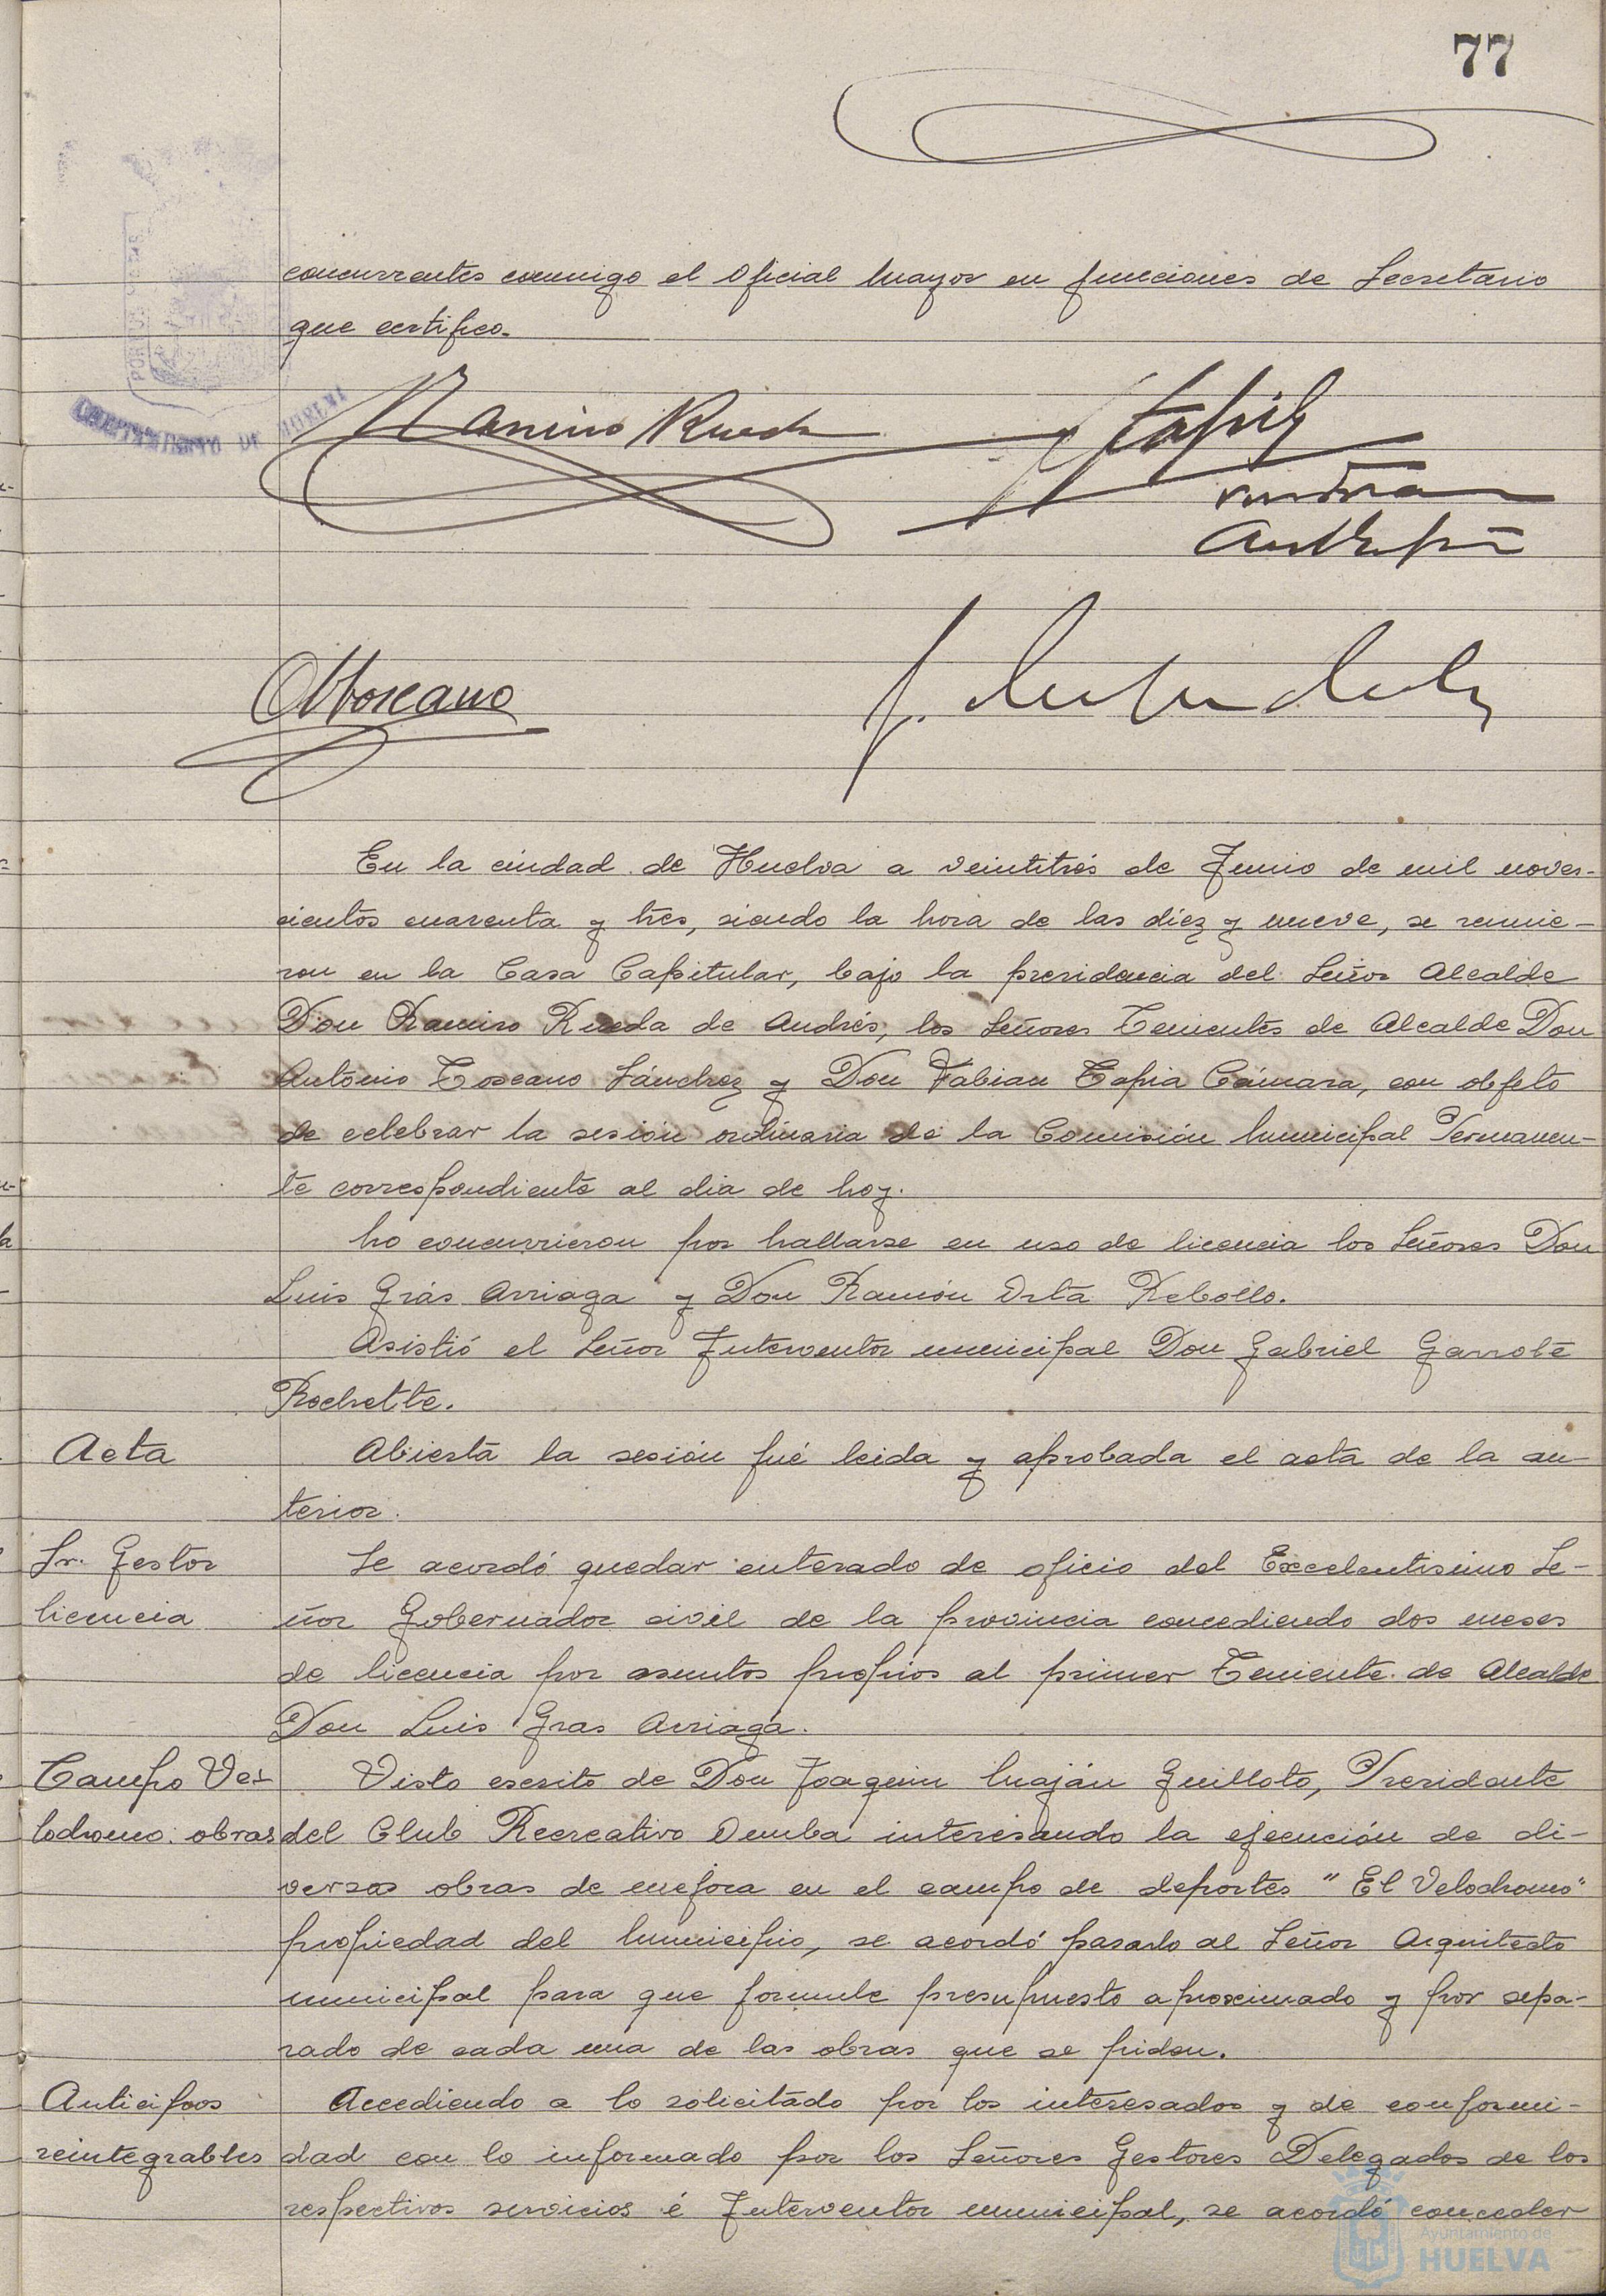 77
concurrentes conmigo el Oficial Mayor en funciones de Secretario
que certifico.
Ramiro Rueda
Tapia
AToscano
En la ciudad de Huelva a veintitrés de Junio de mil noves-
cientos cuarenta y tres, siendo la hora de las diez y nueve, se reunie-
ron en la Casa Capitular, bajo la presidencia del Señor Alcalde
Don Ramiro Rueda de Andrés, los Señores Tenientes de Alcalde Don
Antonio Toscano Sánchez y Don Fabian Tapia Cámara, con objeto
de celebrar la sesión ordinaria de la Comisión Municipal Permanen-
te correspondiente al dia de hoy.
No concurrieron por hallarse en uso de licencia los Señores Don
Luis Grás Arriaga y Don Ramón Orta Rebollo.
Asistió el Señor Interventor municipal Don Gabriel Garrote
Rochette.
Acta
Abierta la sesión fué leida y aprobada el acta de la an-
terior.
Sr. Gestor
licencia
Se acordó quedar enterado de oficio del Excelentisimo Se-
ñor Gobernador civil de la provincia concediendo dos meses
de licencia por asuntos propios al primer Teniente de Alcalde
Don Luis Gras Arriaga.
Campo Ve-
lodromo: obras
Visto escrito de Don Joaquin Maján Guilloto, Presidente
del Club Recreativo Onuba interesando la ejecución de di-
versas obras de mejora en el campo de deportes "El Velodromo"
propiedad del Municipio, se acordó pasarlo al Señor Arquitecto
municipal para que formule presupuesto aproximado y por sepa-
rado de cada una de las obras que se piden.
Anticipos
reintegrables
Accediendo a lo solicitado por los interesados y de conformi-
dad con lo informado por los Señores Gestores Delegados de los
respectivos servicios é Interventor municipal, se acordó conceder
Ayuntamiento de
HUELVA